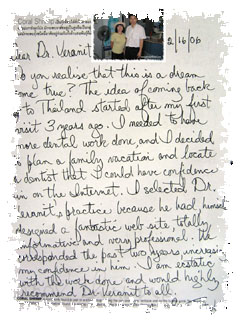 ear Dr. Veranit
2/16/06
o you realise that this is a dream
ome true? The idea of coming back
to Thailand started after my first
visit 3 years ago. I needed to have
more dental work done, and I decided
to plan a family vacation and locate
a dentist that I could have confidence
in on the Internet. I selected Dr.
eranit's practice because he had, himself
designed a fantastic web site, totally
informative and very professional. We
corresponded the past two years, increasing
my confidence in him. I am ecstatic
with the work done and would highly
recommend Dr. Veranit to all.